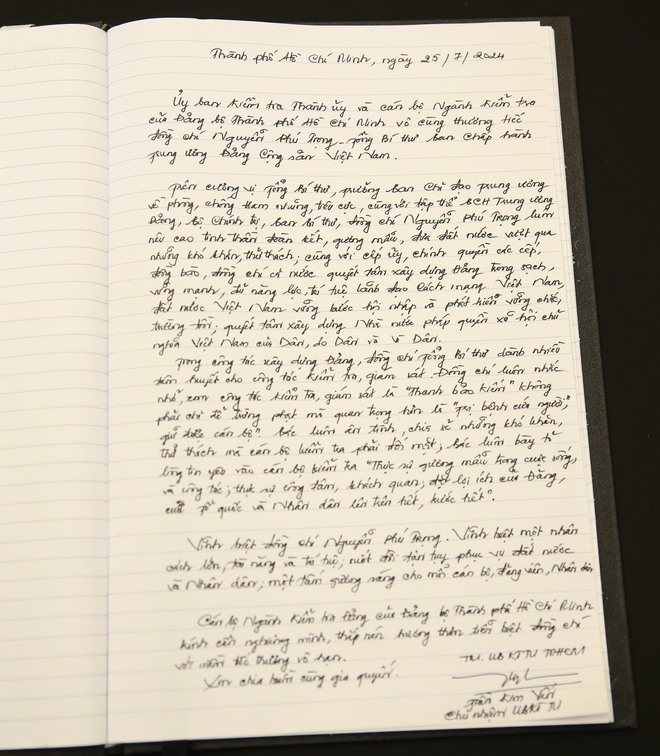 Thành phố Hồ Chí Minh, ngày 25/7/2024
Ủy ban Kiểm tra Thành ủy và cán bộ Ngành Kiểm tra
của Đảng bộ Thành phố Hồ Chí Minh vô cùng thương tiếc
đồng chí Nguyễn Phú Trọng - Tổng Bí thư Ban Chấp hành
Trung ương Đảng Cộng sản Việt Nam.
Trên cương vị Tổng Bí thư, Trưởng ban Chỉ đạo Trung ương
về phòng, chống tham nhũng, tiêu cực, cùng với tập thể BCH Trung ương
Đảng, Bộ Chính trị, Ban Bí thư, đồng chí Nguyễn Phú Trọng luôn
nêu cao tinh thần đoàn kết, gương mẫu, đưa đất nước vượt qua
những khó khăn, thử thách; cùng với cấp ủy, chính quyền các cấp,
đồng bào, đồng chí cả nước quyết tâm xây dựng Đảng trong sạch,
vững mạnh, đủ năng lực, trí tuệ lãnh đạo Cách mạng Việt Nam,
đất nước Việt Nam vững bước hội nhập và phát triển vững chắc,
trường tồn; quyết tâm xây dựng Nhà nước pháp quyền xã hội chủ
nghĩa Việt Nam của Dân, do Dân và Vì Dân.
Trong công tác xây dựng Đảng, đồng chí Tổng Bí thư dành nhiều
tâm huyết cho công tác kiểm tra, giám sát. Đồng chí luôn nhắc
nhở, xem công tác kiểm tra, giám sát là "Thanh bảo kiếm" không
phải chỉ để trừng phạt mà quan trọng hơn là "trị bệnh cứu người",
giữ được cán bộ". Bác luôn ân tình, chia sẻ những khó khăn,
thử thách mà cán bộ kiểm tra phải đối mặt; Bác luôn bày tỏ
lòng tin yêu vào cán bộ kiểm tra "Thực sự gương mẫu trong cuộc sống,
và công tác; thực sự công tâm, khách quan; đặt lợi ích của Đảng,
của Tổ quốc và Nhân dân lên trên hết, trước hết".
Vĩnh biệt đồng chí Nguyễn Phú Trọng. Vĩnh biệt một nhân
cách lớn, tài năng và trí tuệ; suốt đời tận tụy phục vụ đất nước
và Nhân dân; một tấm gương sáng cho mỗi cán bộ, đảng viên, Nhân dân
Cán bộ Ngành Kiểm tra Đảng của Đảng bộ Thành phố Hồ Chí Minh
kính cẩn nghiêng mình, thắp nén hương thơm tiễn biệt đồng chí
với niềm tiếc thương vô hạn.
Xin chia buồn cùng gia quyến.
TM. UBKTTU TPHCM
Trần Kim Yến
Chủ nhiệm UBKT TU